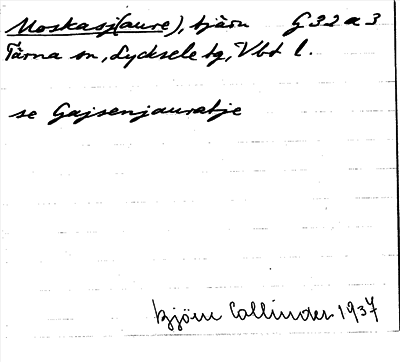 Moskasj(aure), tjärn G32a3
Tärna sn, Lycksele tg, Vbt l.
se Gajsenjauratje
Björn Collinder 1937